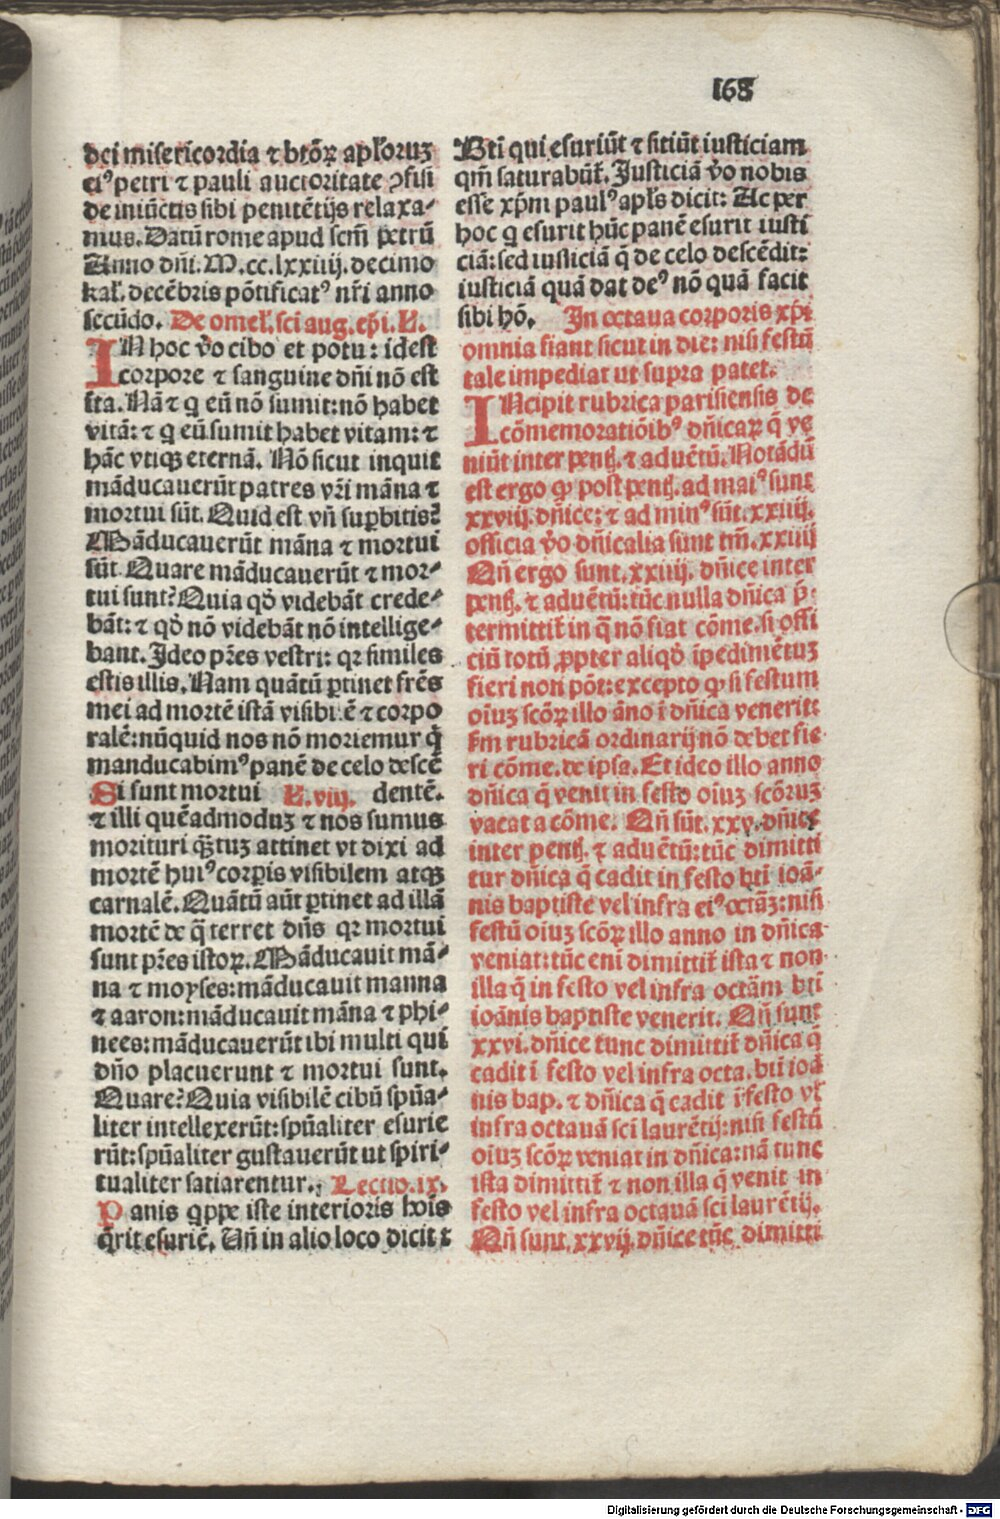 168
dei misericordia ⁊ btōꝝ apl'oruʒ
eiꝰ petri ⁊ pauli auctoritate ↄfisi
de iniūctis sibi penitētijs relaxa-
mus. Datū rome apud scm̄ petrū
Anno dn̄i. M.cc.lxxiiij. decimo
kal'. decēbris pōtificatꝰ nr̄i anno
secūdo. De omel'. sci aug. ep̄i. L.
IN hoc v̄o cibo et potu: idest
corpore ⁊ sanguine dn̄i nō est
ita. Nā ⁊ q eū nō sumit: nō habet
vitā: ⁊ q eū sumit habet vitam: ⁊
hāc vtiqꝫ eternā. Nō sicut inquit
māducauerūt patres vr̄i māna ⁊
mortui sūt. Quid est vn̄ suꝑbitis?
Māducauerūt māna ⁊ mortui
sūt. Quare māducauerūt ⁊ mor-
tui sunt? Quia qō videbāt crede-
bāt: ⁊ qō nō videbāt nō intellige-
bant. Ideo pr̄es vestri: qꝛ similes
estis illis. Nam quātū ꝑtinet fr̄es
mei ad mortē istā visibi ē ⁊ corpo
ralē: nūquid nos nō moriemur q̄
manducabimꝰ panē de celo descē
Si sunt mortui L. viij. dentē.
⁊ illi quēadmoduʒ ⁊ nos sumus
morituri q̄ʒtuʒ attinet vt dixi ad
mortē huiꝰ corꝑis visibilem atqꝫ
carnalē. Quātū aūt ꝑtinet ad illā
mortē de q̄ terret dn̄s qꝛ mortui
sunt pr̄es istoꝝ. Māducauit mā-
na ⁊ moyses: māducauit manna
⁊ aaron: māducauit māna ⁊ phi-
nees: māducauerūt ibi multi qui
dn̄o placuerunt ⁊ mortui sunt.
Quare? Quia visibilē cibū spūa-
liter intellexerūt: spūaliter esurie
rūt: spūaliter gustauerūt ut spiri-
tualiter satiarentur. Lectio. ix.
Panis q̄ppe iste interioris hoīs
q̄rit esuriē. Un̄ in alio loco dicit:
Bti qui esuriūt ⁊ sitiūt iusticiam
qm̄ saturabūt̄. Justiciā v̄o nobis
esse xp̄m paulꝰ apl's dicit: Ac per
hoc q esurit hūc panē esurit iusti
ciā: sed iusticiā q̄ de celo descēdit:
iusticiā quā dat deꝰ nō quā facit
sibi hō. In octaua corporis xp̄i
omnia fiant sicut in die: nisi festū
tale impediat ut supra patet.
INcipit rubrica parisiensis de
cōmemoratiōibꝰ dn̄icaꝝ q̄ ve
niūt inter pentꝭ. ⁊ aduētū. Notādū
est ergo qꝙ post pentꝭ. ad maiꝰ sunt
xxviij. dn̄ice: ⁊ ad minꝰ sūt. xxiiij.
officia v̄o dn̄icalia sunt tm̄. xxiiij
Qn̄ ergo sunt. xxiiij. dn̄ice inter
pentꝭ. ⁊ aduētū: tūc nulla dn̄ica p̄-
termittit̄ in q̄ nō fiat cōme. si offi
ciū totū ꝓpter aliqō īpedimētuʒ
fieri non pōt: excepto ꝙ si festum
oīuʒ scōꝝ illo āno ī dn̄ica venerit:
fm rubricā ordinarij nō debet fie-
ri cōme. de ipsa. Et ideo illo anno
dn̄ica q̄ venit in festo oīuʒ scōruʒ
vacat a cōme. Qn̄ sūt. xxv. dn̄ice
inter pentꝭ. ⁊ aduētū: tūc dimitti
tur dn̄ica q̄ cadit in festo bti ioā-
nis baptiste vel infra eiꝰ octāʒ: nisi
festū oīuʒ scōꝝ illo anno in dn̄ica
veniat: tūc eni dimittit̄ ista ⁊ non
illa q̄ in festo vel infra octām bti
ioānis baptiste venerit. Qn̄ sunt
xxvi. dn̄ice tunc dimittit̄ dn̄ica q̄
cadit ī festo vel infra octa. bti ioā
nis bap. ⁊ dn̄ica q̄ cadit ī festo vl'
infra octauā sci laurētij: nisi festū
oīuʒ scōꝝ veniat in dn̄ica: nā tunc
ista dimittit̄ ⁊ non illa q̄ venit in
festo vel infra octauā sci laurētij.
Qn̄ sunt. xxvij. dn̄ice tūc dimitti
Digitalisierung gefördert durch die Deutsche Forschungsgemeinschaft - DFG